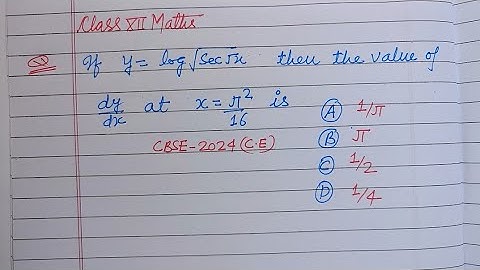 Class XII Maths
Q If y = log√sec√x then the value of
dy/dx at x = π²/16 is
CBSE-2024 (C.E)
A 1/π
B π
C 1/2
D 1/4